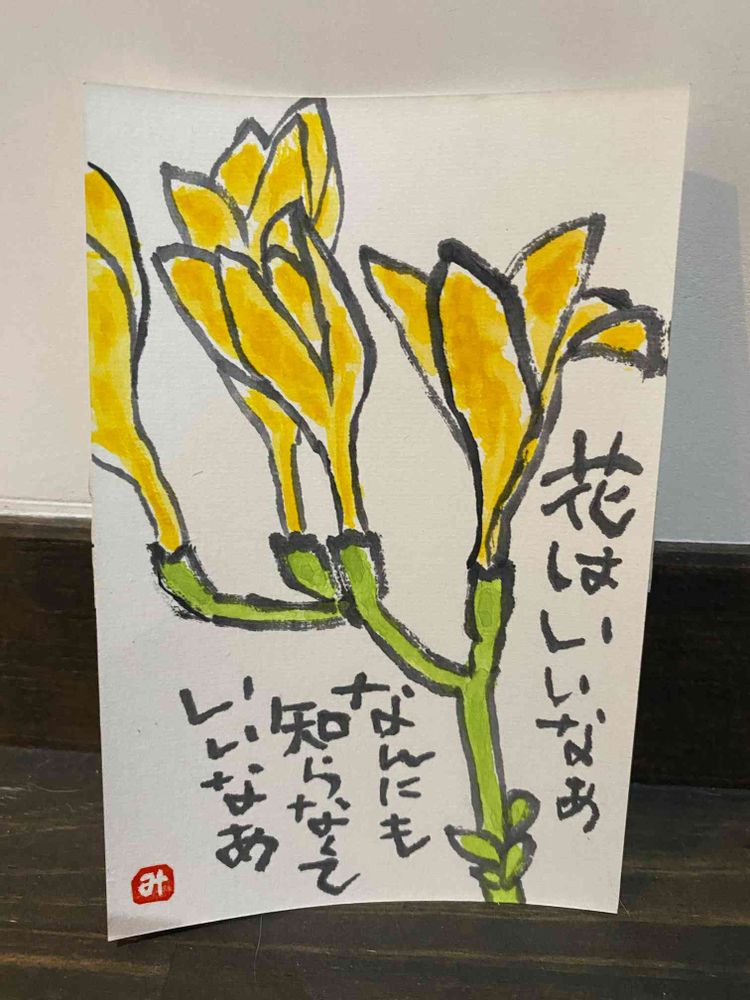 花はいいなあ
なんにも
知らなくて
いいなあ
み